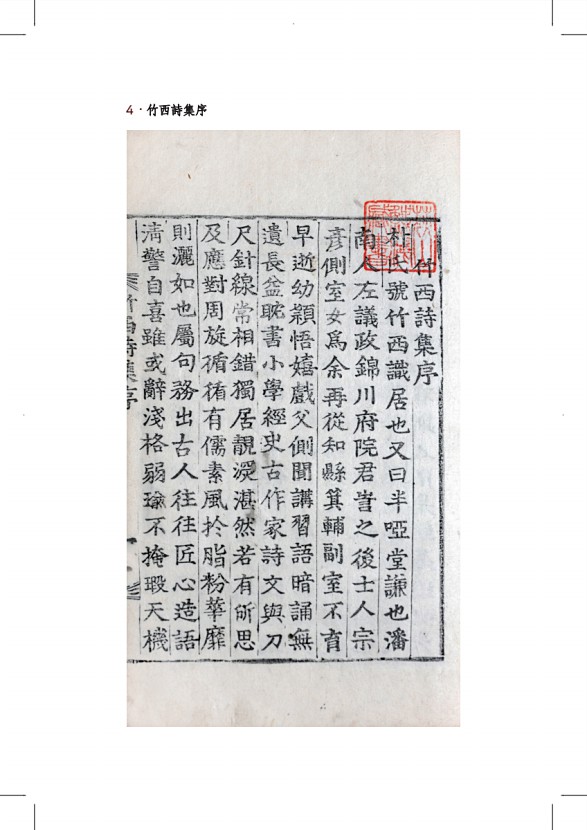 4 · 竹西詩集序
竹西詩集序
朴氏號竹西識居也又曰半啞堂謙也潘
南人左議政錦川府院君訔之後士人宗
彥側室女爲余再從知縣箕輔副室不育
早逝幼穎悟嬉戲父側聞講習語暗誦無
遺長益耽書小學經史古作家詩文與刀
尺針線常相錯獨居靚深湛然若有所思
及應對周旋循循有儒素風於脂粉華靡
則灑如也屬句務出古人往往匠心造語
淸警自喜雖或辭淺格弱瑜不掩瑕天機
竹西詩集序